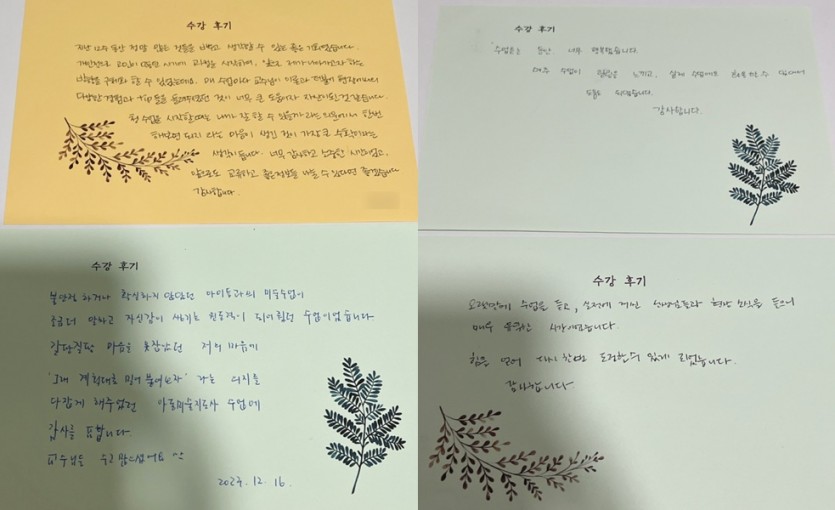 수강 후기
지난 12주 동안 정말 많은 것들을 배우고 생각할 수 있는 좋은 기회였습니다.
개인적으로 고민이 많은 시기에 과정을 시작하여, 앞으로 제가 나아가고자 하는
방향을 구체화 할 수 있었는데요. 매 수업마다 교수님이 이론과 더불어 현장에서의
다양한 경험과 tip 등을 들려주셨던 것이 너무 큰 도움이자 자산이 된 것 같습니다.
첫 수업 시작할 때는 내가 잘 할 수 있을까 라는 의문에서 한번
해보면 되지 라는 마음이 생긴 것이 가장 큰 수확이라는
생각이 듭니다. 너무 감사하고 소중한 시간이었고,
앞으로도 교류하고 좋은 정보를 나눌 수 있다면 좋겠습니다
감사합니다.
수강 후기
수업듣는 동안 너무 행복했습니다.
매주 수업이 느끼고, 실제 수업에도 적용 할 수
도움 되었습니다.
감사합니다.
수강 후기
불안정 하거나 확신하지 않았던 아이들과의 미술수업이
조금더 강하고 자신감이 생기는 원동력이 되어줬던 수업이었습니다
갈팡질팡 마음을 못잡았던 저의 마음에
'1대 계획대로 밀어 붙여보자' 라는 의지를
다잡게 해주었던 아동미술지도사 수업에
감사를 표합니다.
교수님들 수고많으셨어요 ^^
2023. 12. 16.
수강 후기
오랫만에 수업을 듣고, 실전에 계신 선생님들과 현장 소식을 들으니
매우 즐거운 시간이었습니다.
힘을 얻어 다시 한번 도전할수 있게 되었습니다.
감사합니다